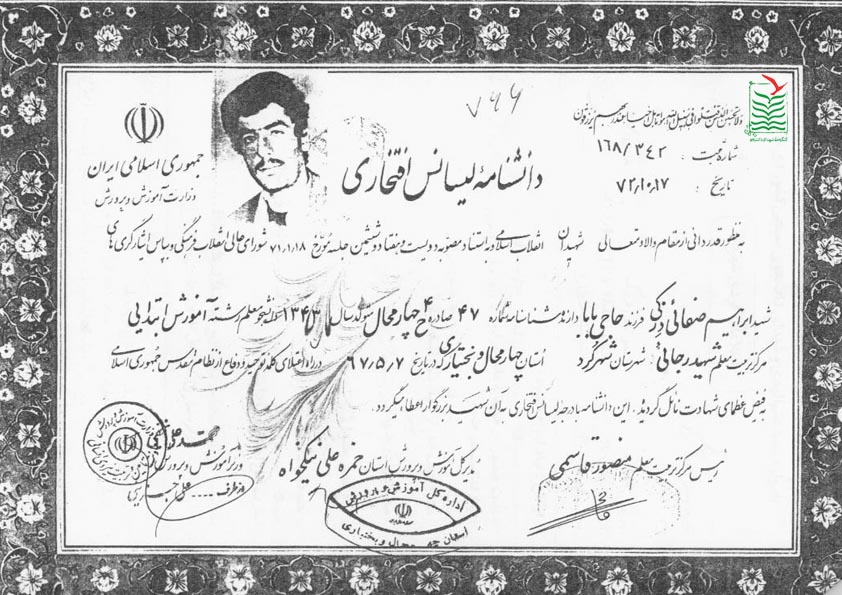 جمهوری اسلامی ایران
وزارت آموزش و پرورش
۷۶۶
شماره ثبت : ۱۶۸/۳۴۲
تاریخ : ۷۲،۱۰،۱۷
دانشنامهٔ لیسانس افتخاری
به منظور قدردانی از مقام والا و متعالی شهیدان انقلاب اسلامی و به استناد مصوبه دویست و هفتاد و ششمین جلسه مورّخ ۷۱،۱،۱۸ شورای عالی انقلاب فرهنگی و بپاس ایثارگری های
شهید ابراهیم صفائی دزکی فرزند حاجی بابا دارنده شناسنامه شماره ۴۷ صادره چهارمحال متولد سال ۱۳۴۳ دانشجو معلم رشته آموزش ابتدایی
مرکز تربیت معلم شهید رجائی شهرستان شهرکرد استان چهارمحال و بختیاری که در تاریخ ۶۷،۵،۷ در راه اعتلای کلمه توحید و دفاع از نظام مقدس جمهوری اسلامی
به فیض عظمای شهادت نائل گردید، این دانشنامه با درجه لیسانس افتخاری به آن شهید بزرگوار اعطا میگردد.
رئیس مرکز تربیت معلم منصور قاسمی
مدیر کل آموزش و پرورش استان حمزه علی نیکخواه
وزیر آموزش و پرورش
از طرف
اداره کل آموزش و پرورش
استان چهارمحال و بختیاری